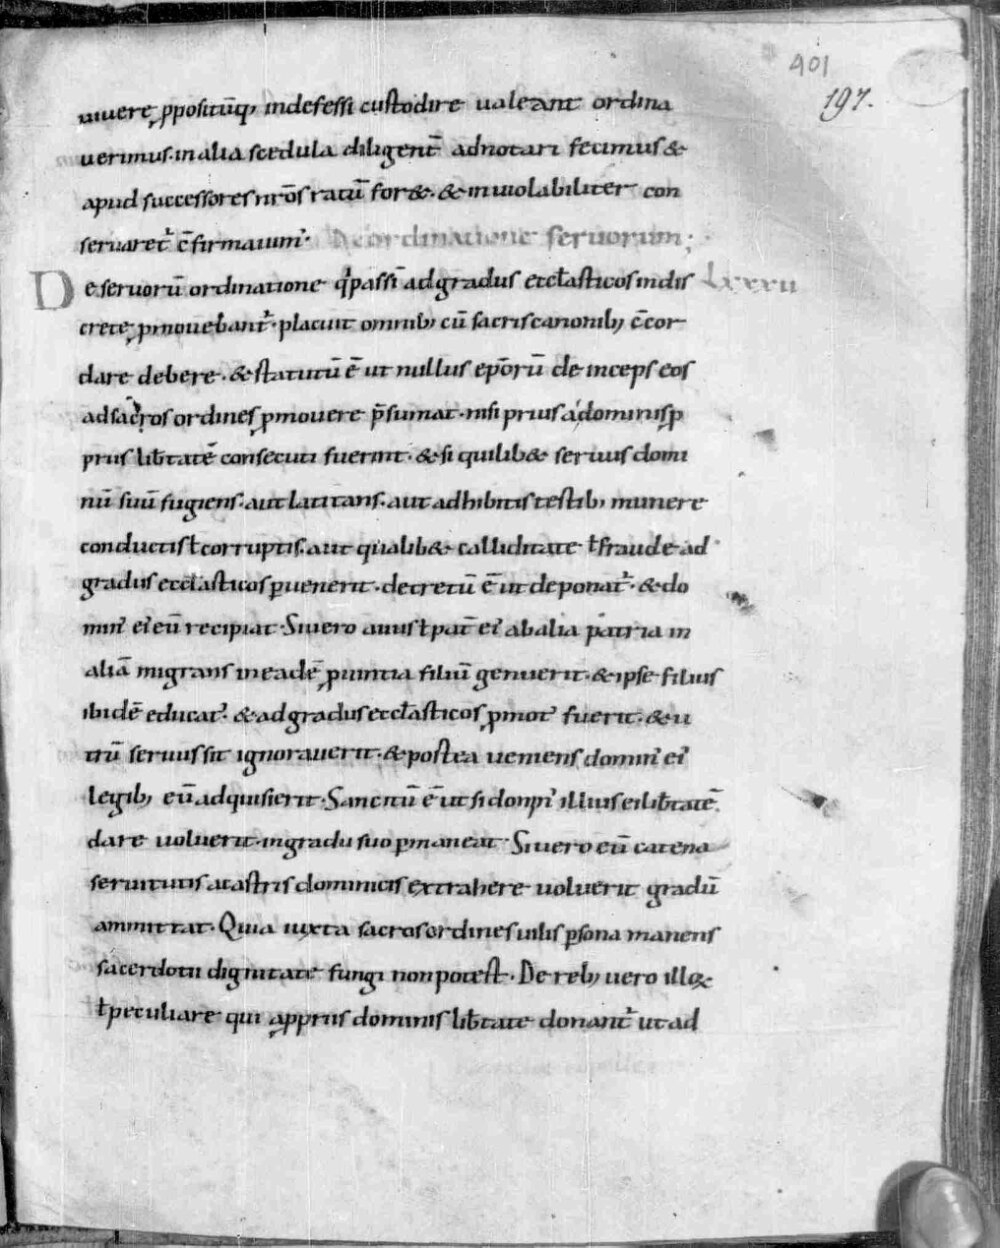 401
197.
uiuere ꝓpositūq; indefessi custodire ualeant ordina
uerimus. in alia scedula diligent̄ adnotari fecimus &
apud successores nr̄os ratū for&. & inuiolabiliter con
seruaret᷑ c̄firmauim᷒.
De ordinatione seruorum;
De seruorū ordinatione q̍ passī ad gradus eccl̄asticos indis
LXXXII
crete ꝓmouebant᷑. placuit omnib; cū sacris canonib; c̄cor
dare debere. & statutū ē ut nullus ep̄orū deinceps eos
ad sacros ordines ꝓmouere p̄sumat. nisi prius a dominis ꝓ
priis lib̄tatē consecuti fuerint. & si quilib& seruus domi
nū suū fugiens. aut latitans. aut adhibitis testib; munere
conductis ł corruptis. aut qualib& calliditate ł fraude ad
gradus eccl̄asticos ꝑuenerit. decretū ē ut deponat᷑. & do
min᷒ ei᷒ eū recipiat. Si uero auus ł pat̄ ei᷒ ab alia patria in
aliā migrans in eadē ꝓuintia filiū genuerit. & ipse filius
ibidē educat᷒. & ad gradus eccl̄asticos ꝓmot᷒ fuerit. & u
trū seruus sit ignorauerit. & postea ueniens domin᷒ ei᷒
legib; eū adquisierit. Sancitū ē ut si donn᷒ illius ei lib̄tatē
dare uoluerit. in gradu suo ꝑmaneat. Si uero eū catena
seruitutis a castris dominicis extrahere uoluerit gradū
ammittat. Quia iuxta sacros ordines uilis ꝑsona manens
sacerdotii dignitate fungi non potest. De reb; uero illoꝝ
ł peculiare qui a ꝓpriis dominis lib̄tate donant᷑ ut ad